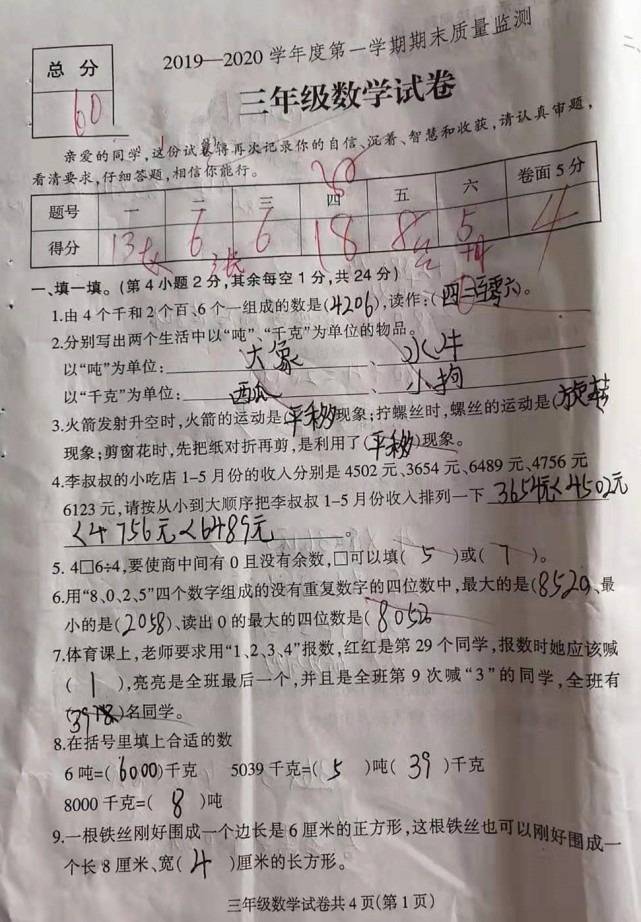 2019—2020学年度第一学期期末质量监测
总 分
60
三年级数学试卷
亲爱的同学,这份试卷将再次记录你的自信、沉着、智慧和收获,请认真审题,
看清要求,仔细答题,相信你能行。
题号 一 二 三 四 五 六 卷面5分
得分 13 6 6 18 8 5 4
一、填一填。(第4小题2分,其余每空1分,共24分)
1.由4个千和2个百、6个一组成的数是(4206),读作:(四 百零六)。
2.分别写出两个生活中以“吨”、“千克”为单位的物品。
以“吨”为单位: 大象 、 水牛
以“千克”为单位: 西瓜 、 小狗
3.火箭发射升空时,火箭的运动是(平移)现象;拧螺丝时,螺丝的运动是(旋转)
现象;剪窗花时,先把纸对折再剪,是利用了(平移)现象。
4.李叔叔的小吃店1-5月份的收入分别是4502元、3654元、6489元、4756元
6123元,请按从小到大顺序把李叔叔1-5月份收入排列一下 3654元<4502元
<4756元<6489元 。
5. 4□6÷4,要使商中间有0且没有余数,□可以填( 5 )或( 7 )。
6.用“8、0、2、5”四个数字组成的没有重复数字的四位数中,最大的是(8520)、最
小的是(2058)、读出0的最大的四位数是( 8052
7.体育课上,老师要求用“1、2、3、4”报数,红红是第29个同学,报数时她应该喊
( 1 ),亮亮是全班最后一个,并且是全班第9次喊“3”的同学,全班有
(39)名同学。
8.在括号里填上合适的数
6吨=(6000)千克 5039千克=( 5 )吨( 39 )千克
8000千克=( 8 )吨
9.一根铁丝刚好围成一个边长是6厘米的正方形,这根铁丝也可以刚好围成一
个长8厘米、宽( 4 )厘米的长方形。
三年级数学试卷共4页(第1页)